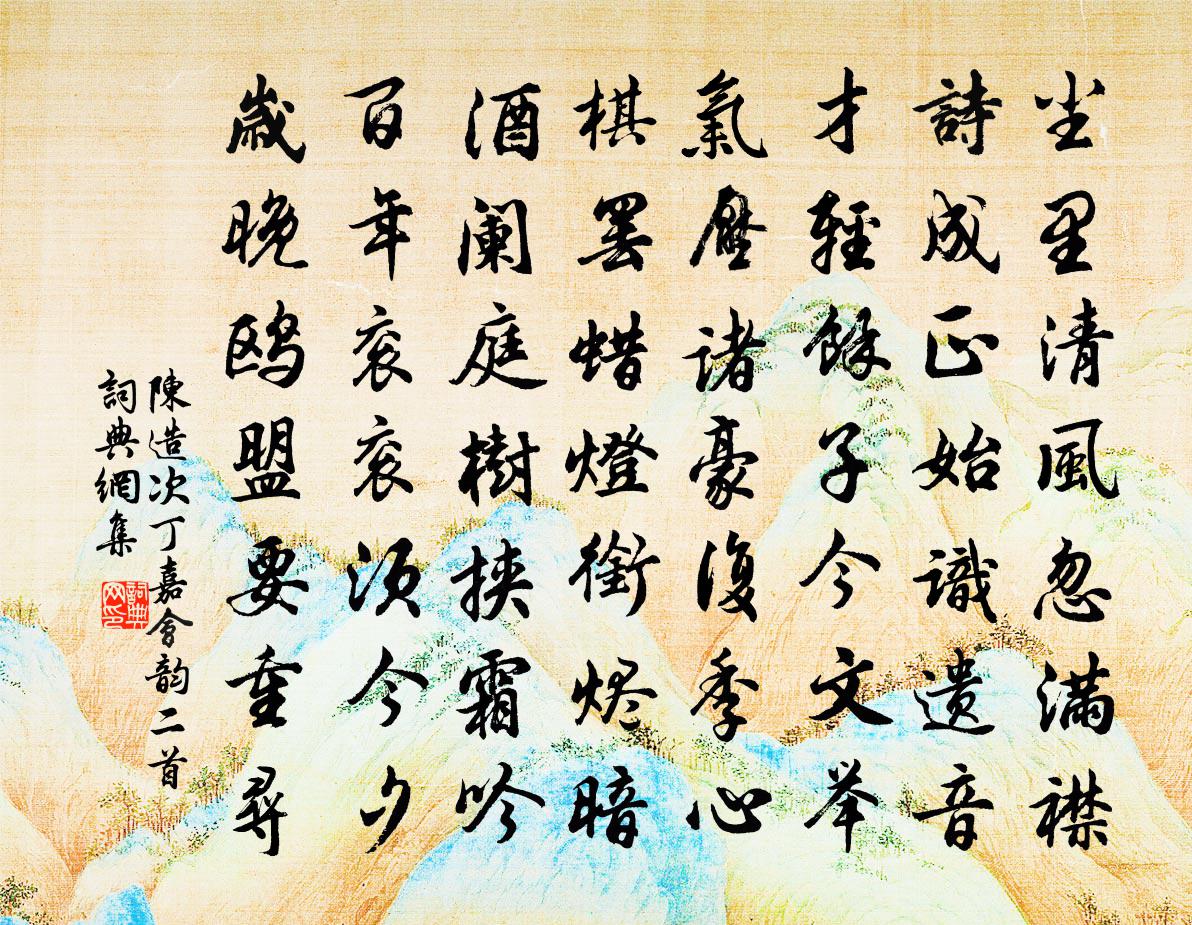 尘里清風忽滿襟
詩成正始識遺音
才輕餘子今文举
氣壓諸豪復季心
棋罢蜡燈銜烬暗
酒阑庭樹挾霜吟
百年衮衮須今夕
歲晚鸥盟要重尋
陳造次丁嘉會韵二首
詞典網集